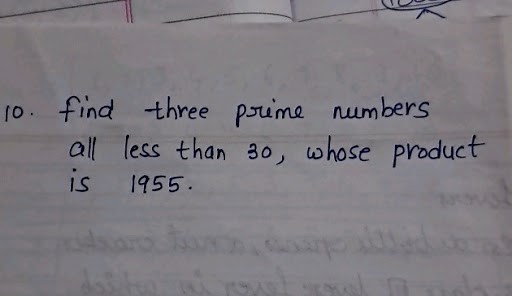 10. find three prime numbers
all less than 30, whose product
is 1955.